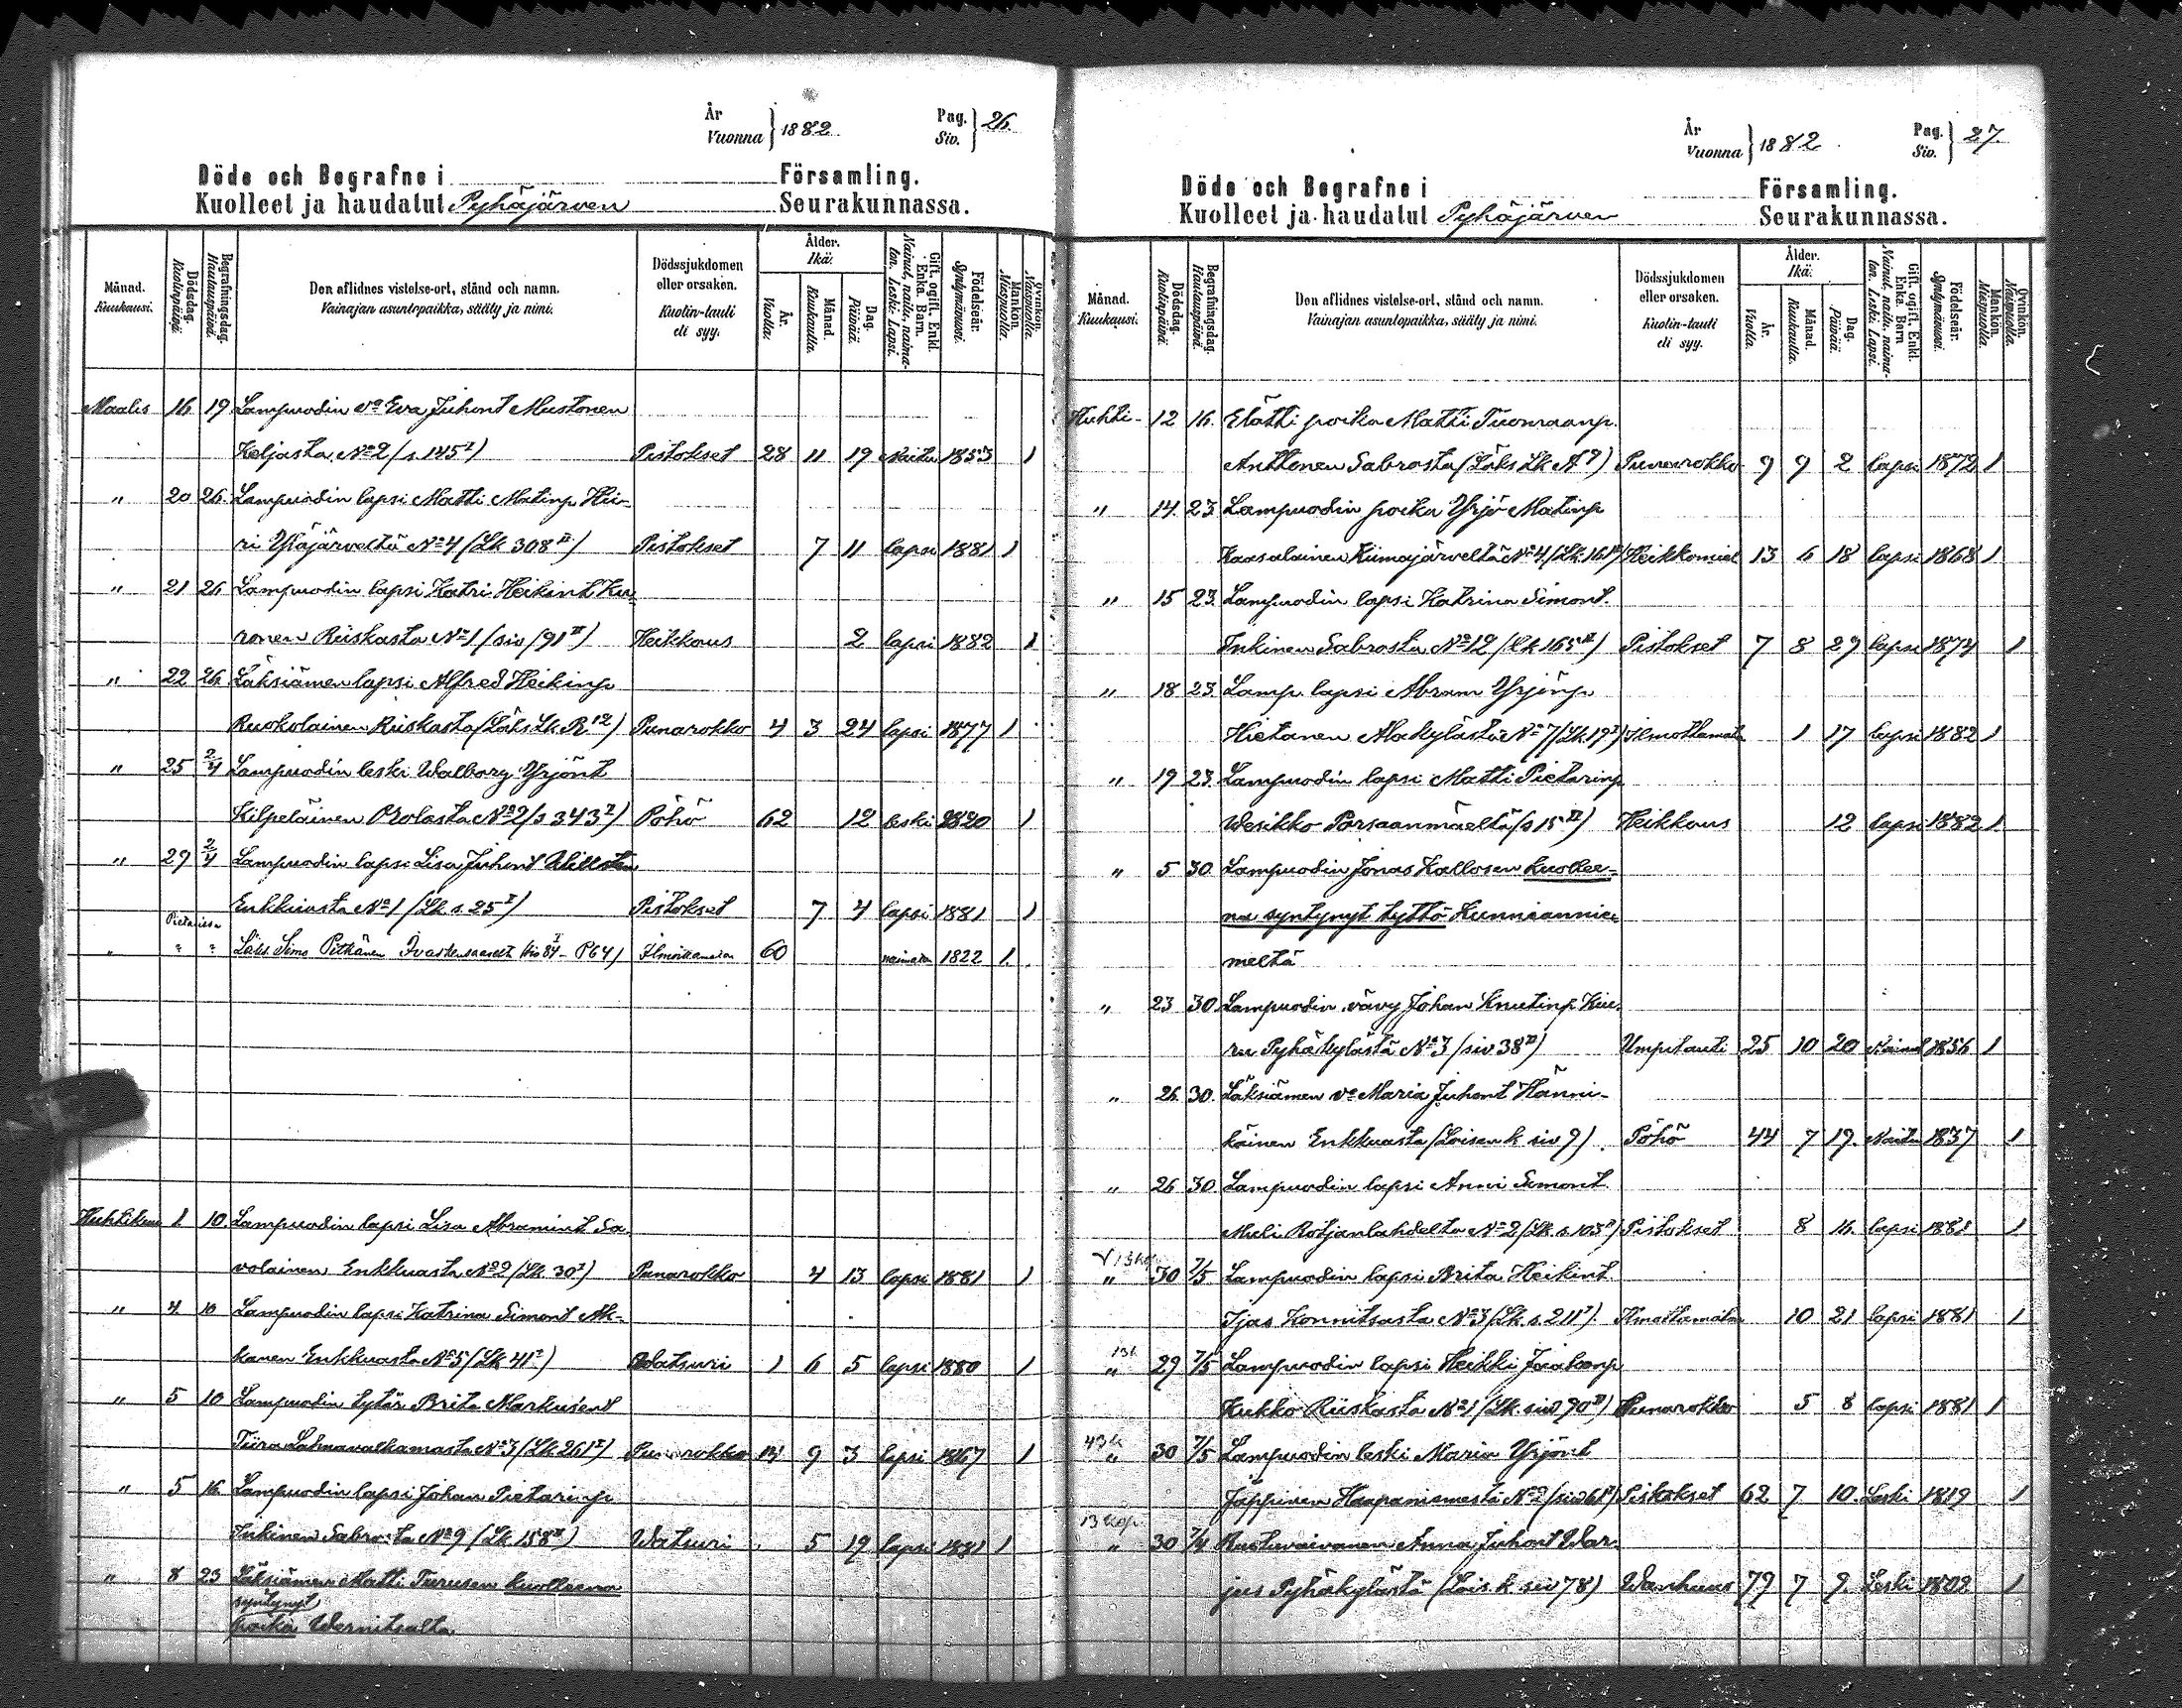 År
Vuonna } 1882
Pag.
Siv. } 26.
Döde och Begrafne i Församling.
Kuolleet ja haudatut Pyhäjärven Seurakunnassa.
Månad. Kuukausi.
Dödsdag. Kuolinpäivä.
Begrafningsdag. Hautauspäivä.
Den aflidnes vistelse-ort, stånd och namn. Vainajan asuntopaikka, sääty ja nimi.
Dödssjukdomen eller orsaken. Kuolin-tauti eli syy.
Ålder. Ikä.
År. Vuotta.
Månad. Kuukautta.
Dag. Päivää.
Gift, ogift, Enkl. Enka. Barn. Nainut, naitu, naimaton. Leski. Lapsi.
Födelseår. Syntymävuosi.
Mankön. Miespuolia.
Qvinkön. Naispuolia.
Maalis 16 19 Lampuodin vo Eva Juhont Mustonen
Keljasta No 2 (s. 145 I) Pistokset 28 11 19 Naitu 1853 1
" 20 26 Lampuodin lapsi Matti Matinp Hii-
ri Yläjärveltä No 4 (Lk 308 II) Pistokset 7 11 lapsi 1881 1
" 21 26 Lampuodin lapsi Katri Heikint Ku-
ronen Riiskasta No 1 (siv 191 II) Heikkous 2 lapsi 1882 1
" 22 26 Läksiämen lapsi Alfred Heikinp
Ruokolainen Riiskasta (Läks Lk R 12) Punarokko 4 3 24 lapsi 1877 1
" 25 2/4 Lampuodin leski Walborg Yrjönt
Kilpeläinen No 2 (s 343 I) Pöhö 62 12 leski 1820 1
" 29 2/4 Lampuodin lapsi Lisa Juhont
Enkkuasta No 1 (Lk s. 25 I) Pistokset 7 4 lapsi 1881 1
Pietarissa
" " " Läks. Simo Pitkänen P 64) Ilmoittamaton 60 naimaton 1822 1.
Huhtikuu 1 10. Lampuodin lapsi Lisa Abramint Sa-
volainen Enkkuasta No 2 (Lk 30 I) Punarokko 4 13 lapsi 1881 1
" 4 10 Lampuodin lapsi Katrina Simont Ak-
kanen Enkkuasta No 5 (Lk 41 I) Watsuri 1 6 5 lapsi 1880 1
" 5 10 Lampuodin tytär Brita Markusent
Tiira Lahnavalkamasta No 3 (Lk 261 I) Punarokko 14 9 3 lapsi 1867 1
" 5 16 Lampuodin lapsi Johan Pietarinp
Inkinen Sabrosta No 9 (Lk 158 II) Watsuri 5 19 lapsi 1881 1
" 8 23 Läksiämen Matti Turusen kuolleena
syntynyt
poika Wernitsalta
År
Vuonna } 1882
Pag.
Siv. } 27.
Döde och Begrafne i Församling.
Kuolleet ja haudatut Pyhäjärven Seurakunnassa.
Månad. Kuukausi.
Dödsdag. Kuolinpäivä.
Begrafningsdag. Hautauspäivä.
Den aflidnes vistelse-ort, stånd och namn. Vainajan asuntopaikka, sääty ja nimi.
Dödssjukdomen eller orsaken. Kuolin-tauti eli syy.
Ålder. Ikä.
År. Vuotta.
Månad. Kuukautta.
Dag. Päivää.
Gift, ogift, Enkl. Enka. Barn Nainut, naitu, naimaton. Leski. Lapsi.
Födelseår. Syntymävuosi.
Mankön. Miespuolia.
Qvinkön. Naispuolia.
Huhti- 12 16. Elätti poika Matti Tuomaanp.
Anttonen Sabrosta (Läks Lk A 7) Punarokko 9 9 2 lapsi 1872 1
" 14. 23 Lampuodin poika Yrjö Matinp
Kaasalainen Kiimajärveltä No 4 (Lk 161 II) Heikkomiel 13 6 18 lapsi 1868 1
" 15 23. Lampuodin lapsi Katrina Simont.
Inkinen Sabrosta No 12 (Lk 165 II) Pistokset 7 8 29 lapsi 1874 1
" 18 23. Lamp. lapsi Abram Yrjönp
Hietanen Alakylästä No 7 (Lk 19 I) Ilmottamata 1 17 lapsi 1882 1
" 19 23 Lampuodin lapsi Matti Pietarinp
Wesikko Porsaanmäeltä (s 15 II) Heikkous 12 lapsi 1882 1
" 5 30. Lampuodin Jonas Kallosen kuollee-
na syntynyt tyttö Kunnianni
meltä
" 23 30 Lampuodin vävy Johan Knutinp Kiu-
ru Pyhäkylästä No 3 (siv 38 II) Umputauti 25 10 20 Nainut 1856 1
" 26. 30. Läksiämen vo Maria Juhont Hänni-
käinen Enkkuasta (Loisen k siv 9) Pöhö 44 7 19. Naitu 1837 1
" 26 30 Lampuodin lapsi Anni Simont
Muli Rotjanlahdelta No 2 (Lk s. 103 II) Pistokset 8 16. lapsi 1881 1
" 30 7/5 Lampuodin lapsi Brita Heikint.
Ijas Konnitsasta No 3 (Lk s. 211 I). Ilmottamata 10 21 lapsi 1881 1
13k
" 29 7/5 Lampuodin lapsi Heikki Jaakonp
Kukko Riiskasta No 1 (Lk siv 90 II) Punarokko 5 8 lapsi 1881 1
43k
" 30 7/5 Lampuodin leski Maria Yrjönt
Jäppinen Haapaniemestä No 2 (siv 61 I) Pistokset 62 7 10. Leski 1819 1
13 kop
" 30 7/4 Ruotuvaivanen Anna Juhont War-
jus Pyhäkylästä (Lois. k. siv 78) Wanhuus 79 7 9. Leski 1802 1